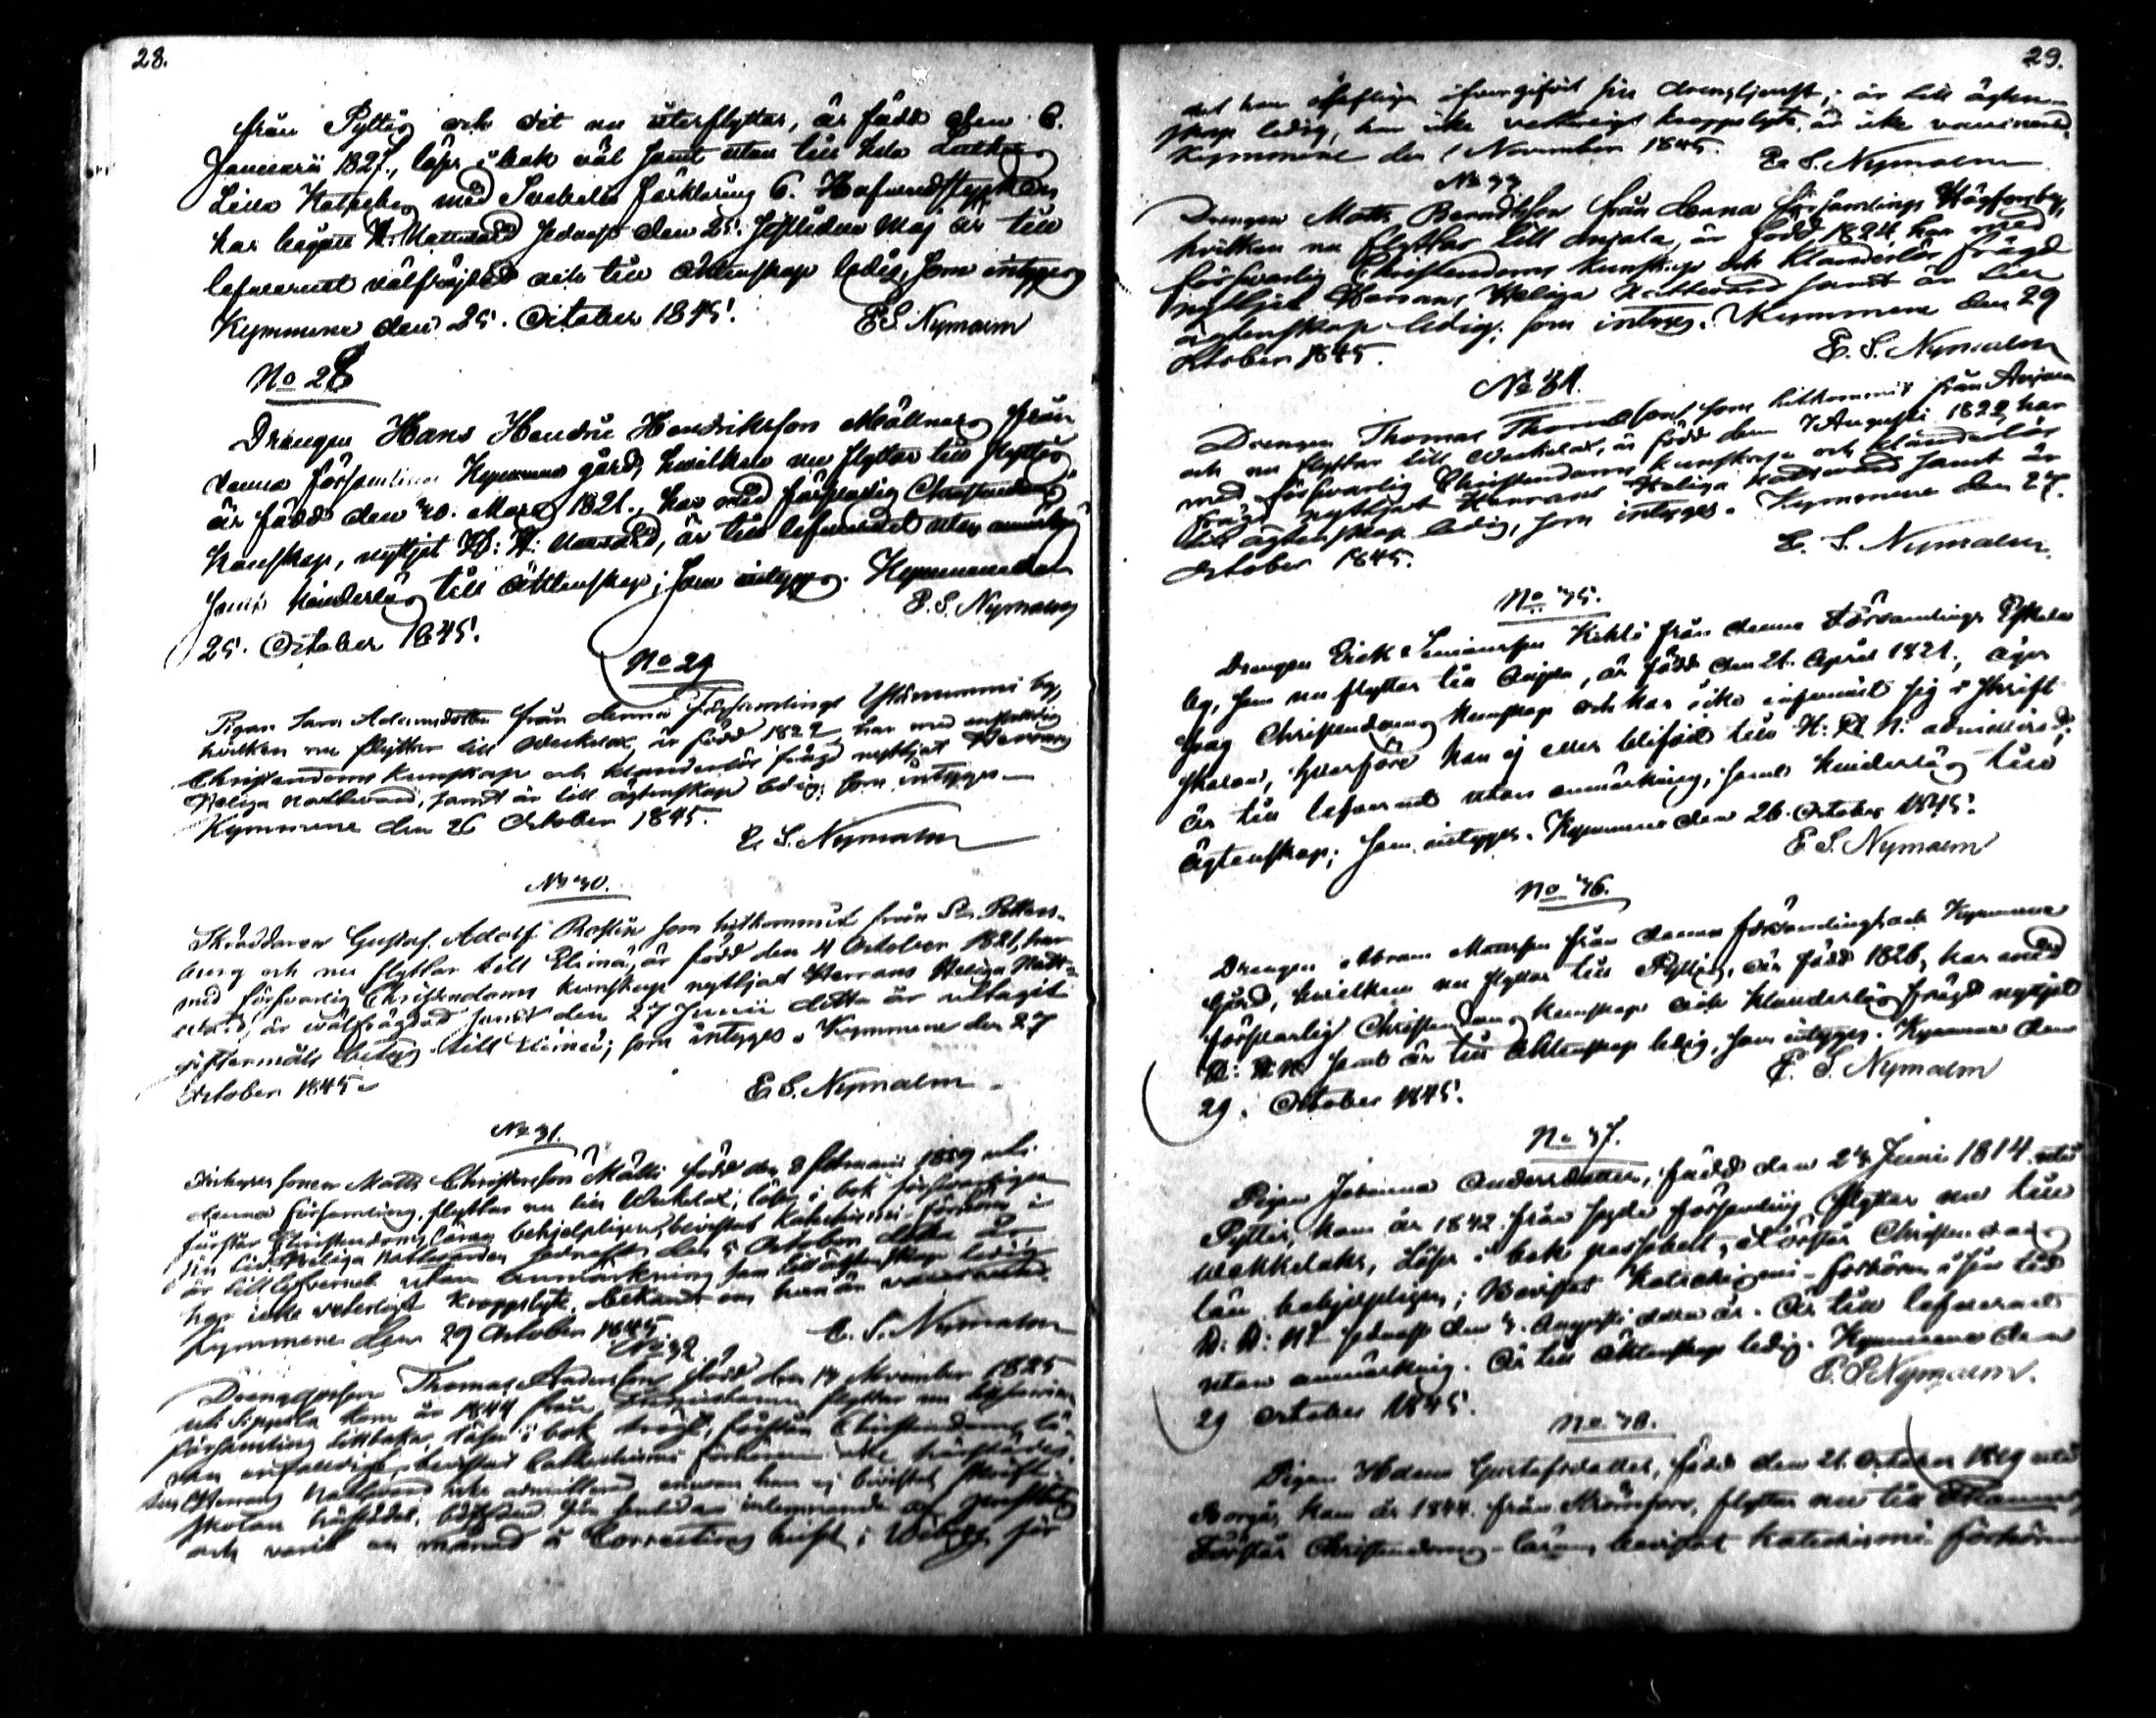 28.
från Pyttis och dit nu återflyttar, är född den 6.
Januarii 1827., läser i bok väl samt utan till hela
Lilla Katheches med Svebelii förklaring 6. Hufvudstycken
har begått H. Nattvard sednast den 25. sistliden Maj är till
lefvernet välfrejdad och till äktenskap ledig, som intygas
Kymmene den 25. October 1845. E S Nymalm
No 28
Drängen Hans Hendric Hendriksson Mällnars från
denna församlings Kymmene gård, hvilken nu flyttar till Pyttis
är född den 30. Mars 1821., har med försvarlig Christendoms
kunskap, nyttjat H: H: Nattvard, är till lefvernet utan anmärkning
samt hinderlös till äktenskap; som intygas. Kymmene den
25. October 1845. E. S. Nymalm
No 29
Pigan Sara Adamsdotter från denna församlings by,
hvilken nu flyttar till Weckelax, är född 1822, har med
Christendoms kunskap och klanderlös frägd nyttjat Herrans
Heliga Nattvard, samt är till ägtenskap ledig; som intygas
Kymmene den 26 October 1845.
E. S. Nymalm
No 30.
Skräddaren Gustaf Adolf som hitkommit från St. Petters-
burg och nu flyttar till Elimä, är född den 4 October 1821, har
med försvarlig Christendoms kunskap nyttjat Herrans Heliga Natt-
vard, är wälfrägdad samt den 27 Junii detta är uttagit
betyg till Elimä; som intygas. Kymmene den 27
October 1845.
E. S. Nymalm
No 31.
sonen Matts Christersson Mätti född den 8 Februarii
denna församling, flyttar nu till Weckelax; läser i bok försvarligen
förstår Christendoms läran behjelpligen, bevistat Katechismi förhören i
sin tid. Heliga Nattvarden sednast den 5 October detta år
är till lefvernet utan anmärkning samt till äktenskap ledig,
har icke veterligt kroppslyte, obekant om han är vaccinerad.
Kymmene den 29 October 1845
E. S. Nymalm
No 32.
Thomas Andersson, född den November 1825
uti Sippola kom år 1844 från flyttar nu till
församling tillbaka, läser i bok trögt, förstår Christendoms lä-
ran enfaldigt, bevistat Cathechismi förhören icke
Herrans Nattvard icke admitterad emedan han ej bevistat skrift-
skolan
och varit en månad å Correctionshuset i Wiborg för
29.
det han olofligen öfvergifvit sin drengtjenst; är till ägten-
skap ledig, har icke veterligt kroppslyte, är icke vaccinerad
Kymmene den 1 November 1845. E. S. Nymalm
No 33
Drengen Matts Berndtsson från denna församlings Högfors by,
hvilken nu flyttar till Anjala, är född 1824 har med
försvarlig Christendoms kunskap och klanderlös frägd
nyttjat Herrans Heliga Nattvard samt är till
ägtenskap ledig; som intygas. Kymmene den 29
October 1845.
E. S. Nymalm
No 34.
Drengen Thomas Thomasson som hitkommit från Anjala
och nu flyttar till Weckelax, är född den 7 Augusti 1822 har
med försvarlig Christendoms kunskap och klanderlös
frägd nyttjat Herrans Heliga Nattvard samt är
till ägtenskap ledig, som intygas. Kymmene den 27.
October 1845.
E. S. Nymalm
No 35.
Drengen Erick Simonsson från denna Församlings
by, som nu flyttar till Anjala, är född den 21. April 1821., äger
svag Christendoms kunskap och har icke infunnit sig i skrift
skolan, hvarföre han ej eller blifvit till H: H. N: admitterad;
är till lefvernet utan anmärkning, samt hinderlös till
ägtenskap; som intygas. Kymmene den 26. October 1845.
E. S. Nymalm
No 36.
Drengen Abram Mattsson från denna församling och Kymmene
Gård, hvilken nu flyttar till Pyttis, är född 1826, har med
försvarlig Christendoms kunskap och klanderlös frägd nyttjat
H: H: N: samt är till äktenskap ledig, som intygas. Kymmene den
29. October 1845.
E. S. Nymalm
No 37.
Pigan Johanna Andersdotter, född den 23 Junii 1814 uti
Pyttis, kom år 1842 från sagde församling flyttar nu till
Wekkelaks, Läser i bok passabelt, Förstår Christendoms
läran behjelpligen; Bevistat Katechismi-förhören i sin tid
H: H: Nt sednast den 3. Augusti detta år. Är till lefvernet
utan anmärkning. Är till äktenskap ledig. Kymmene den
29 October 1845.
E. S. Nymalm.
No 38.
Pigan Helena Gustafsdotter, född den 21. October 1819 uti
Borgå, kom år 1844. från Strömfors, flyttar nu till
Förstår Christendoms-läran, bevistat Katechismi förhören